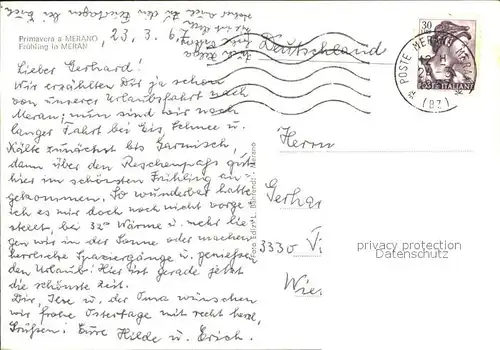 Primavera a MERANO
Frühling in MERAN
23. 3. 67
Deutschland
30
POSTE ITALIANE
POSTE MERANO
(BZ)
Lieber Gerhard!
Wir erzählten Dir ja schon
von unserer Urlaubsfahrt nach
Meran, nun sind wir nach
langer Fahrt bei Eis, Schnee u.
Kälte zunächst bis Garmisch,
dann über den Reschenpaß gut
hier im schönsten Frühling an-
gekommen. So wunderbar hatte
ich es mir doch noch nicht vorge-
stellt, bei 32° Wärme u. mehr lie-
gen wir in der Sonne oder machen
herrliche Spaziergänge u. genießen
den Urlaub! Hier ist gerade jetzt
die schönste Zeit.
Dir, Ilse u. der Oma wünschen
wir frohe Ostertage mit recht herzl.
Grüßen! Eure Hilde u. Erich.
Foto Ediz. L. Bährendt - Merano
Herrn
Gerhar
3330
Wies
privacy protection
Datenschutz